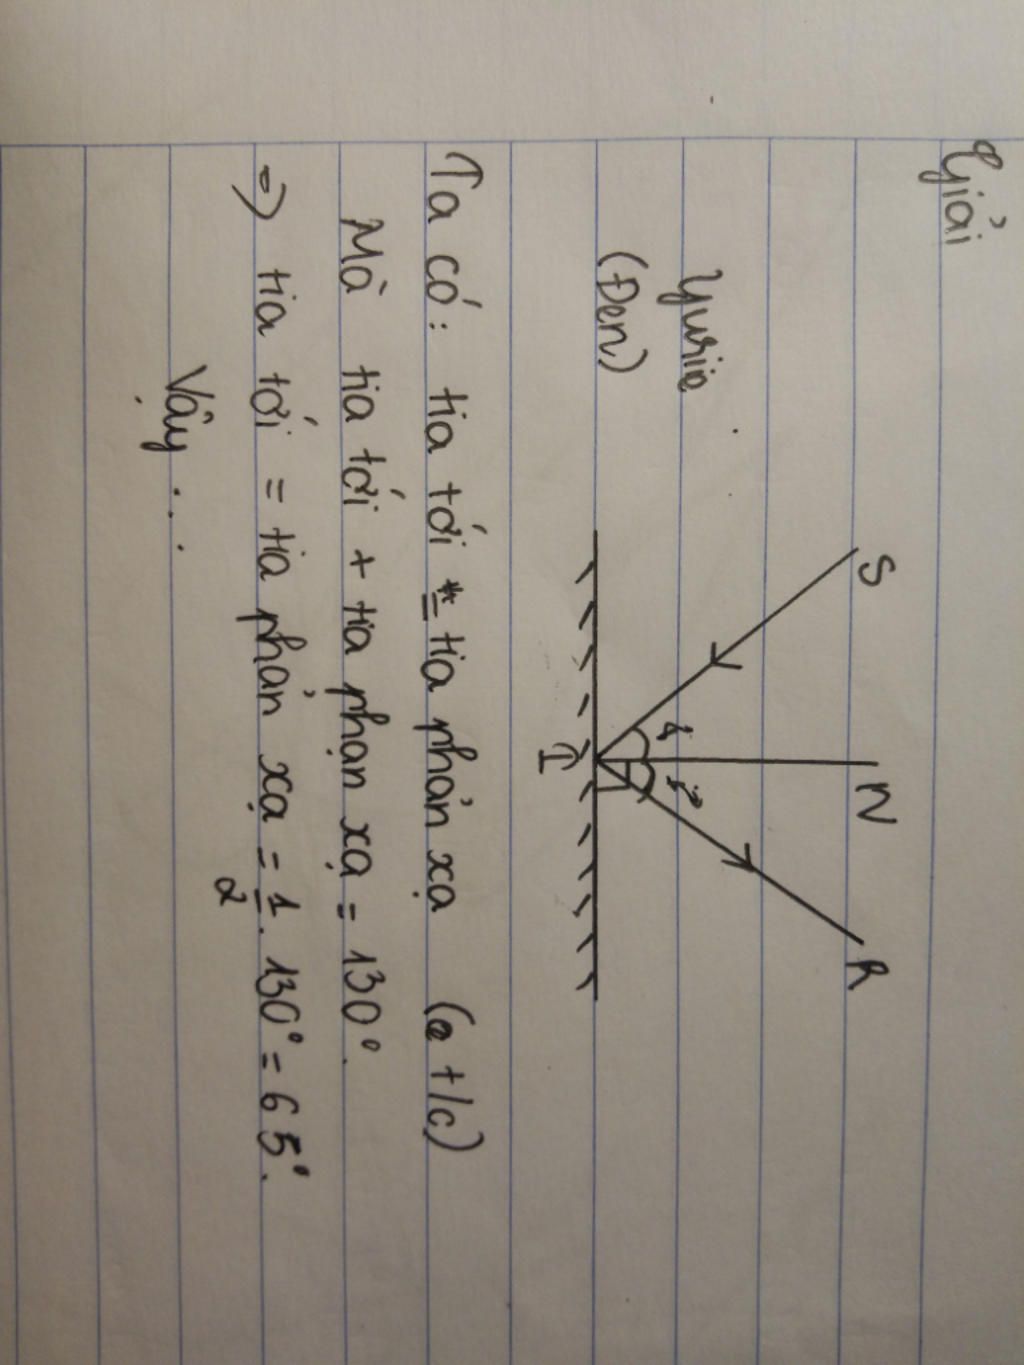 Giải
Yurie
(Đen)
S
N
R
i
I
Ta có: tia tới = tia phản xạ (a t/c)
Mà tia tới + tia phản xạ = 130°.
=> tia tới = tia phản xạ = 1/2 . 130° = 65°.
Vậy ...